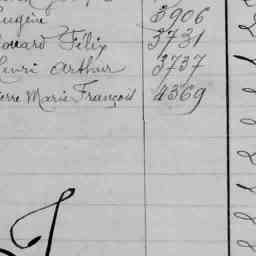 Eugène 3906
douard Félix 3731
Henri Arthur 3737
ierre Marie François 4369